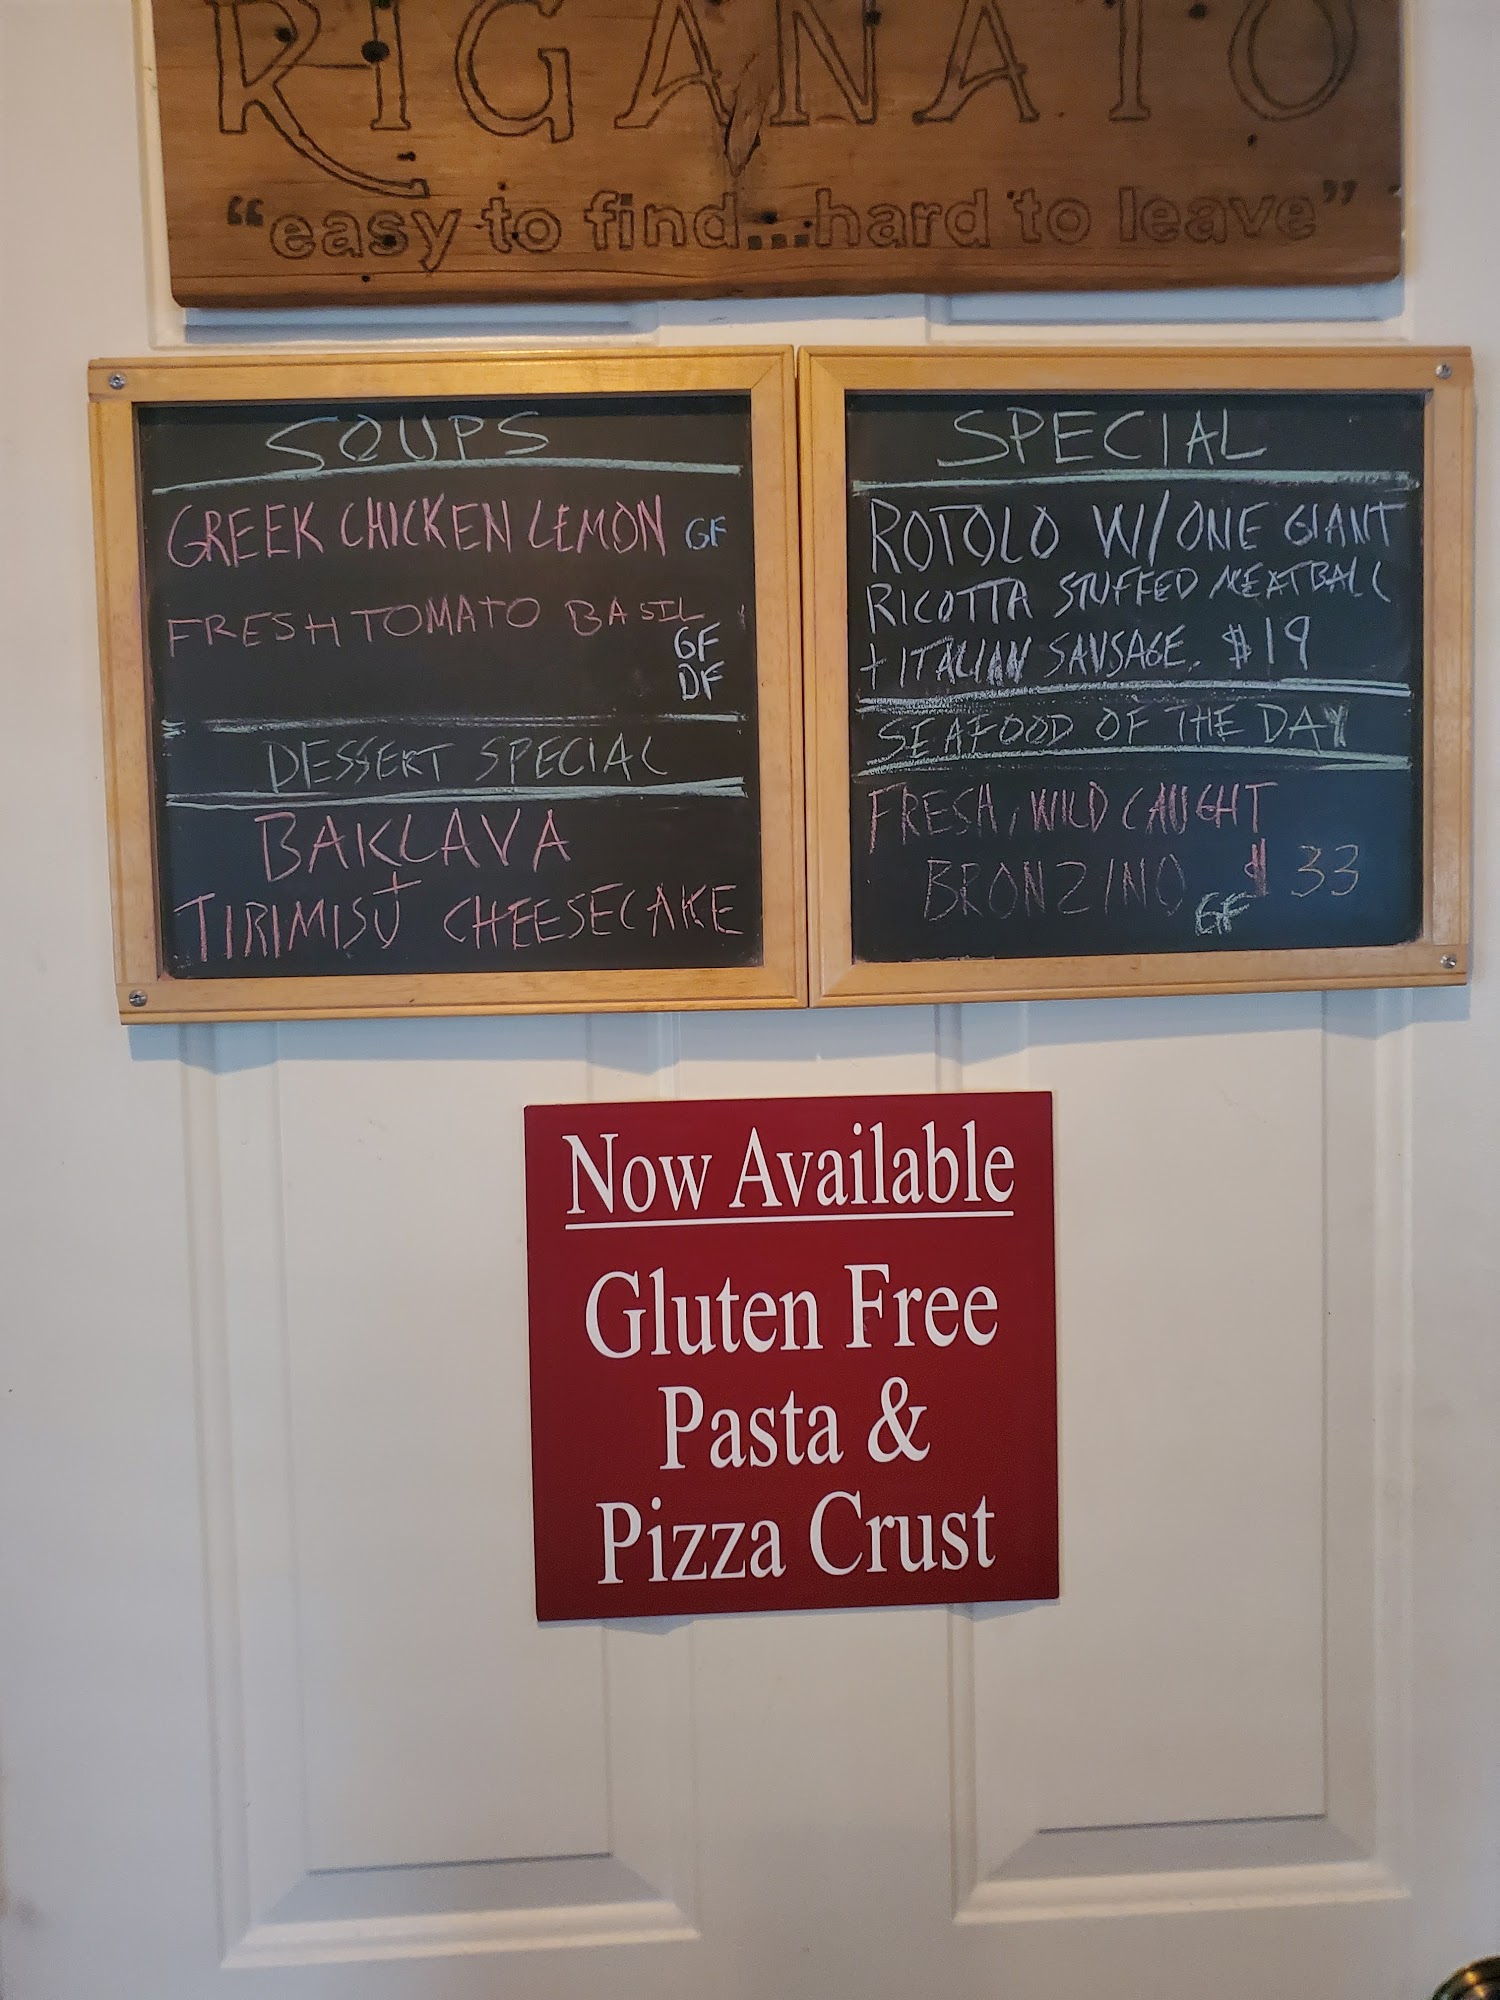 RIGANATO
“easy to find...hard to leave”
SOUPS
GREEK CHICKEN LEMON GF
FRESH TOMATO BASIL
GF
DF
DESSERT SPECIAL
BAKLAVA
+
TIRIMISU CHEESECAKE
SPECIAL
ROTOLO W/ONE GIANT
RICOTTA STUFFED MEATBALL
+ ITALIAN SAUSAGE. $19
SEAFOOD OF THE DAY
FRESH, WILD CAUGHT
BRONZINO $33
GF
Now Available
Gluten Free
Pasta &
Pizza Crust